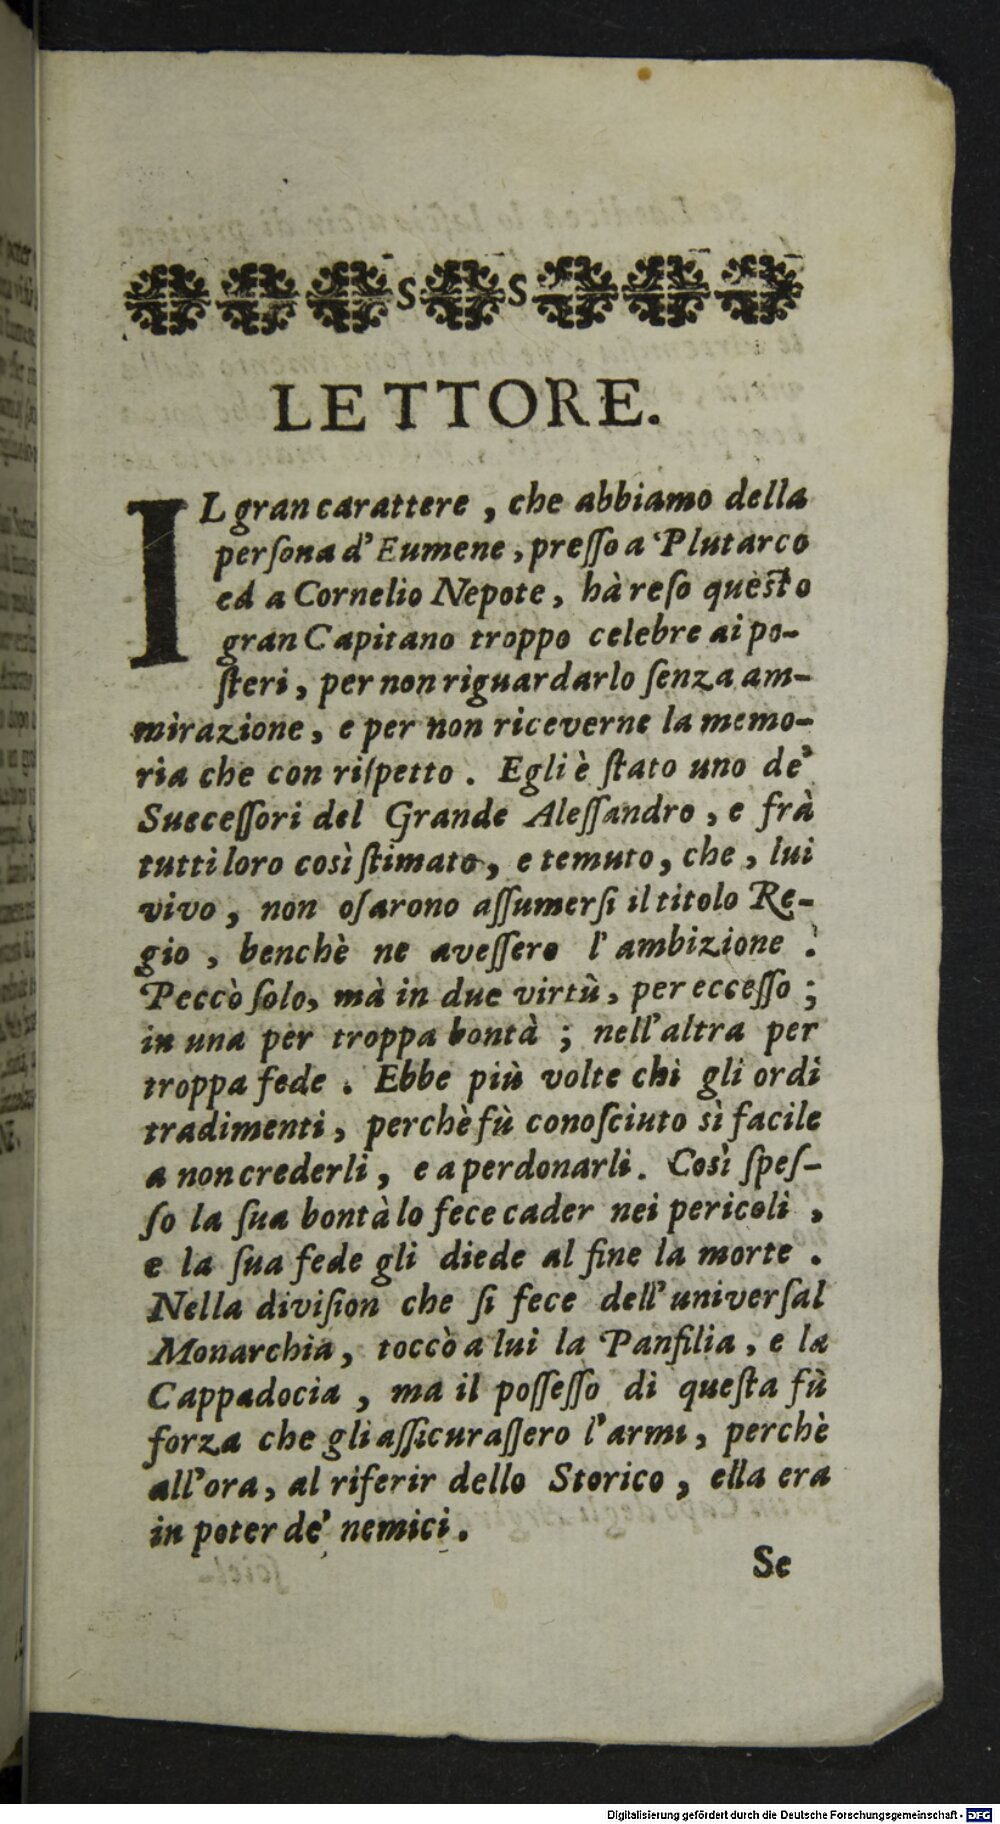 LETTORE.
IL gran carattere, che abbiamo della
perſona d'Eumene, preſſo a Plutarco
ed a Cornelio Nepote, hà reſo quèſto
gran Capitano troppo celebre ai po-
ſteri, per non riguardarlo ſenza am-
mirazione, e per non riceverne la memo-
ria che con riſpetto. Egli è ſtato uno de'
Succeſſori del Grande Aleſſandro, e frà
tutti loro così ſtimato, e temuto, che, lui
vivo, non oſarono aſſumerſi il titolo Re-
gio, benchè ne aveſſero l'ambizione.
Peccò ſolo, mà in due virtù, per ecceſſo;
in una per troppa bontà; nell'altra per
troppa fede. Ebbe più volte chi gli ordì
tradimenti, perchè fù conoſciuto sì facile
a non crederli, e a perdonarli. Così ſpeſ-
ſo la ſua bontà lo fece cader nei pericoli,
e la ſua fede gli diede al fine la morte.
Nella diviſion che ſi fece dell'univerſal
Monarchia, toccò a lui la Panfilia, e la
Cappadocia, ma il poſſeſſo di queſta fù
forza che gli aſſicuraſſero l'armi, perchè
all'ora, al riferir dello Storico, ella era
in poter de' nemici.
Se
Digitalisierung gefördert durch die Deutsche Forschungsgemeinschaft - DFG